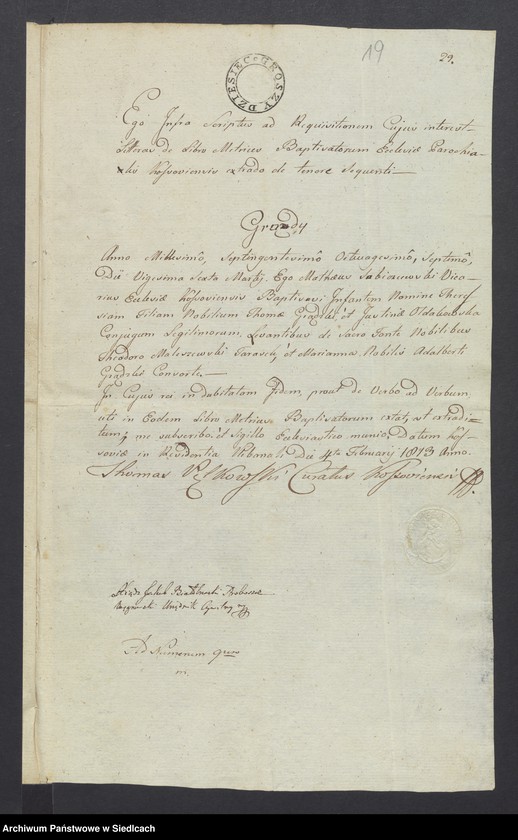 19
29.
DZIESIĘĆ GROSZY
Ego Infra Scriptus ad Requisitionem Cujus interest
Litteras de Libro Metrices Baptisatorum Ecclesiæ Parochia-
lis Kossoviensis extrado de tenore Sequenti
Grondy
Anno Millesimô, Septingentesimô Octuagesimô, Septimô,
Diê Vigesima Sexta Martij. Ego Mathæus Vica-
rius Ecclesiæ Kossoviensis Baptisavi Infantem Nomine There-
siam Filiam Nobilium Thomæ et Justinæ Oldakowska
Conjugum Legitimorum, Levantibus de Sacro Fonte Nobilibus
Theodoro Maleszewski et Marianna Nobilis Adalberti
Consorte.
In Cujus rei indubitatam Fidem, prout de Verbo ad Verbum,
uti in Eodem Libro Metrices Baptisatorum extat, et extradi-
tum; me subscribo, et Sigillo Ecclesiastico munio, Datum Kos-
soviæ in Residentia Urbana Diê 4ta Februarij 1813 Anno.
Thomas Curatus Kossoviensis
Xiądz Jakub Proboszcz
Urzędnik Cywilny
Ad Numerum
m.
Archiwum Państwowe w Siedlcach